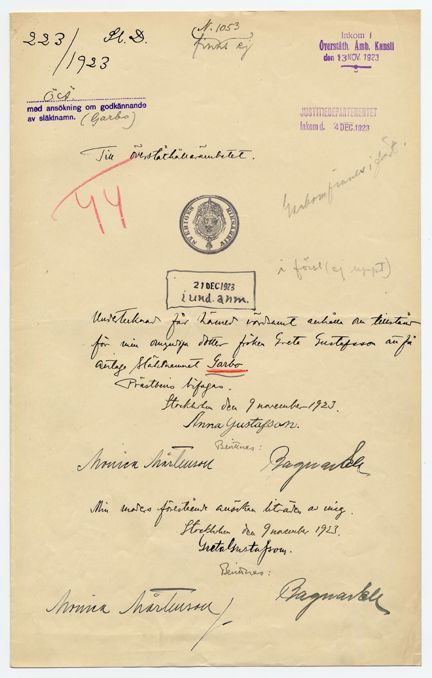 223/1923
St. D.
N. 1053
Inkom i
Överståth. Ämb. Kansli
den 13 NOV. 1923
ÖÄ.
med ansökning om godkännande
av släktnamn. (Garbo)
JUSTITIEDEPARTEMENTET
Inkom d. 4 DEC. 1923
Till överståthållarämbetet.
44
SVERIGES RIKSARKIV
i först (ej uppt)
21 DEC 1923
i und. anm.
Undertecknad får härmed vördsamt anhålla om tillstånd
för min omyndiga dotter fröken Greta Gustafsson att få
antaga släktnamnet Garbo.
Prästbevis bifogas.
Stockholm den 9 november 1923.
Anna Gustafsson.
Bevittnes:
Monica Mårtenson
Min moders förestående ansökan biträdes av mig.
Stockholm den 9 november 1923.
Greta Gustafsson.
Bevittnes:
Monica Mårtenson